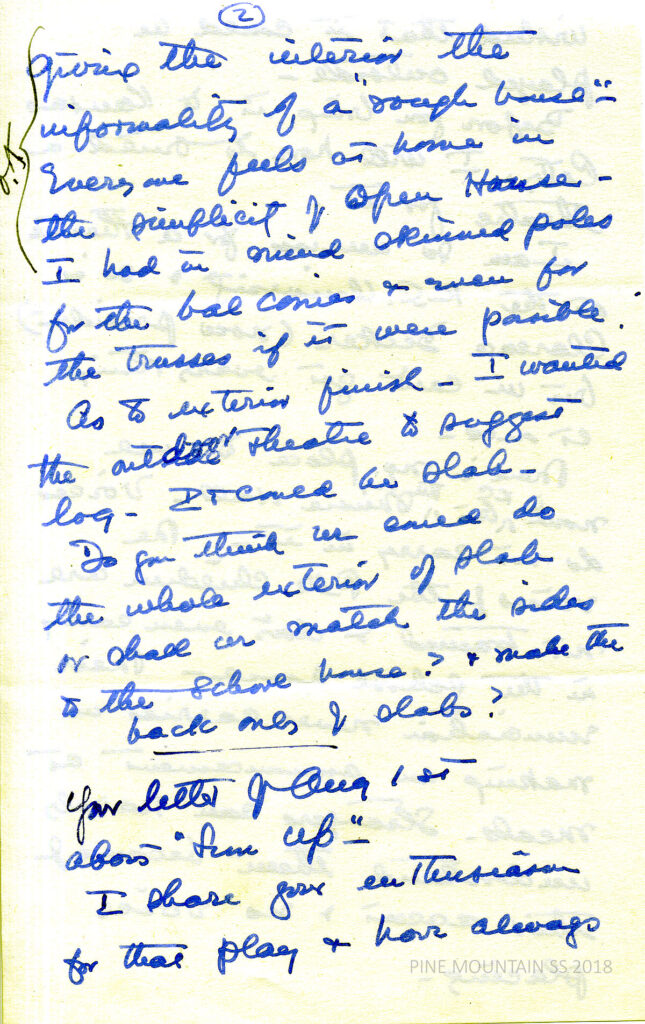 2
giving the interior the
informality of a "rough house" -
Everyone feels at home in
the simplicit of Open House -
I had in mind skinned poles
for the balconies & even for
the trusses if it were possible.
As to exterior finish - I wanted
the outdoor theatre to suggest
log - It could be slab -
Do you think we could do
the whole exterior of slab
or shall we match the sides
to the School house? & make the
back ones of slabs?
Your letter of Aug 1st
about "Sun Up" -
I share your enthusiasm
for that play & have always
PINE MOUNTAIN SS 2018